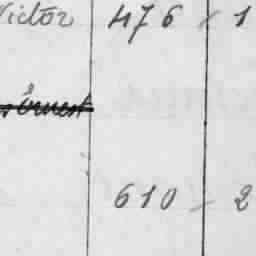 Victor 476 / 1
610 - 2